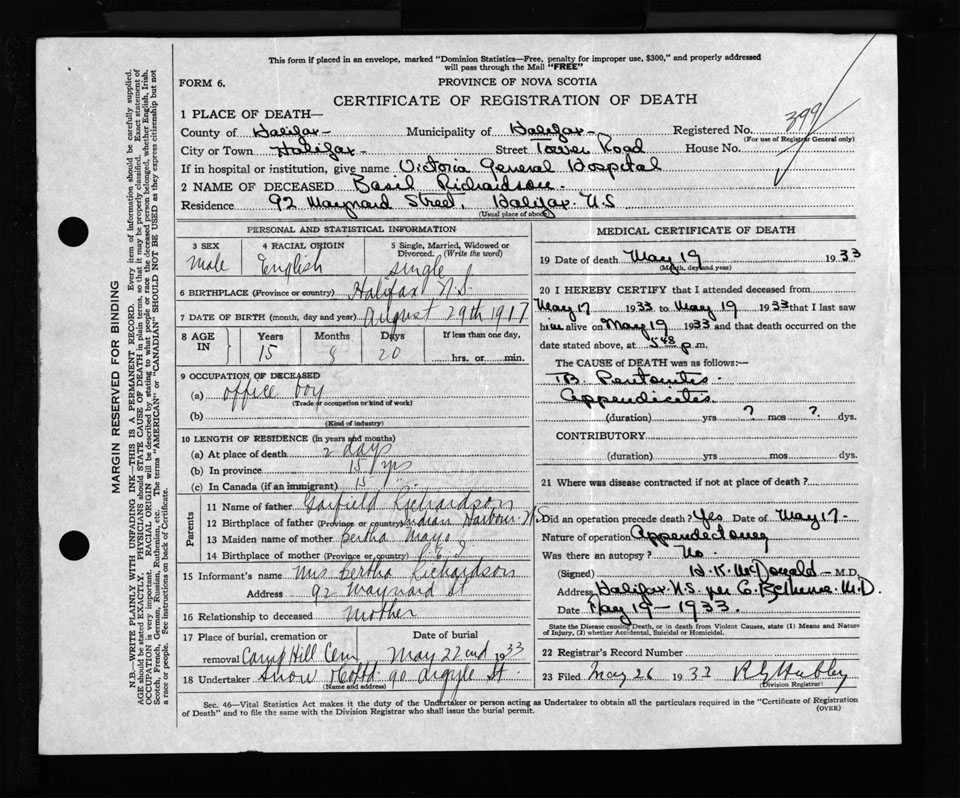 This form if placed in an envelope, marked "Dominion Statistics—Free, penalty for improper use, $300," and properly addressed
will pass through the Mail "FREE"
FORM 6. PROVINCE OF NOVA SCOTIA
CERTIFICATE OF REGISTRATION OF DEATH
399
1 PLACE OF DEATH—
County of Halifax Municipality of Halifax Registered No.
(For use of Registrar General only)
City or Town Halifax Street Tower Road House No.
If in hospital or institution, give name Victoria General Hospital
2 NAME OF DECEASED Basil Richardson.
Residence 92 Maynard Street, Halifax N.S
(Usual place of abode)
MARGIN RESERVED FOR BINDING
N.B.—WRITE PLAINLY WITH UNFADING INK—THIS IS A PERMANENT RECORD. Every item of information should be carefully supplied.
AGE should be stated EXACTLY. PHYSICIANS should STATE CAUSE OF DEATH in plain terms, so that it may be properly classified. Exact statement of
OCCUPATION is very important. RACIAL ORIGIN will be described by stating to what people or race the deceased person belonged, whether English, Irish,
Scotch, French, German, Russian, Ruthenian, etc. The terms "AMERICAN" or "CANADIAN" SHOULD NOT BE USED as they express citizenship but not
a race or people. See instructions on back of Certificate.
PERSONAL AND STATISTICAL INFORMATION
3 SEX 4 RACIAL ORIGIN 5 Single, Married, Widowed or
Divorced. (Write the word)
male English single
6 BIRTHPLACE (Province or country) Halifax N.S.
7 DATE OF BIRTH (month, day and year) August 29th 1917
8 AGE IN Years Months Days If less than one day,
15 8 20 hrs. or min.
9 OCCUPATION OF DECEASED
(a) office boy
(Trade or occupation or kind of work)
(b)
(Kind of industry)
10 LENGTH OF RESIDENCE (in years and months)
(a) At place of death 2 days
(b) In province 15 yrs
(c) In Canada (if an immigrant) 15
Parents
11 Name of father Garfield Richardson
12 Birthplace of father (Province or country) Indian Harbour N.S
13 Maiden name of mother Bertha Mayo
14 Birthplace of mother (Province or country) P.E.I
15 Informant's name Mrs Bertha Richardson
Address 92 Maynard St
16 Relationship to deceased mother
17 Place of burial, cremation or Date of burial
removal Camp Hill Cem May 22nd 1933
18 Undertaker Snow & Co Ltd. 90 Argyle St.
(Name and address)
MEDICAL CERTIFICATE OF DEATH
19 Date of death May 19 1933
(Month, day and year)
20 I HEREBY CERTIFY that I attended deceased from
May 17 1933 to May 19 1933 that I last saw
him alive on May 19 1933 and that death occurred on the
date stated above, at 548 p.m.
The CAUSE OF DEATH was as follows:—
TB Peritonitis.
Appendicitis.
(duration) yrs ? mos ? dys.
CONTRIBUTORY
(duration) yrs mos dys.
21 Where was disease contracted if not at place of death?
Did an operation precede death? Yes Date of May 17-
Nature of operation Appendectomy
Was there an autopsy? No
(Signed) H.K. McDonald M.D.
Address Halifax N.S. per M.D.
Date May 19 — 1933.
State the Disease causing Death, or in death from Violent Causes, state (1) Means and Nature
of Injury, (2) whether Accidental, Suicidal or Homicidal.
22 Registrar's Record Number
23 Filed May 26 1933
(Division Registrar)
Sec. 46—Vital Statistics Act makes it the duty of the Undertaker or person acting as Undertaker to obtain all the particulars required in the "Certificate of Registration
of Death" and to file the same with the Division Registrar who shall issue the burial permit.
(OVER)